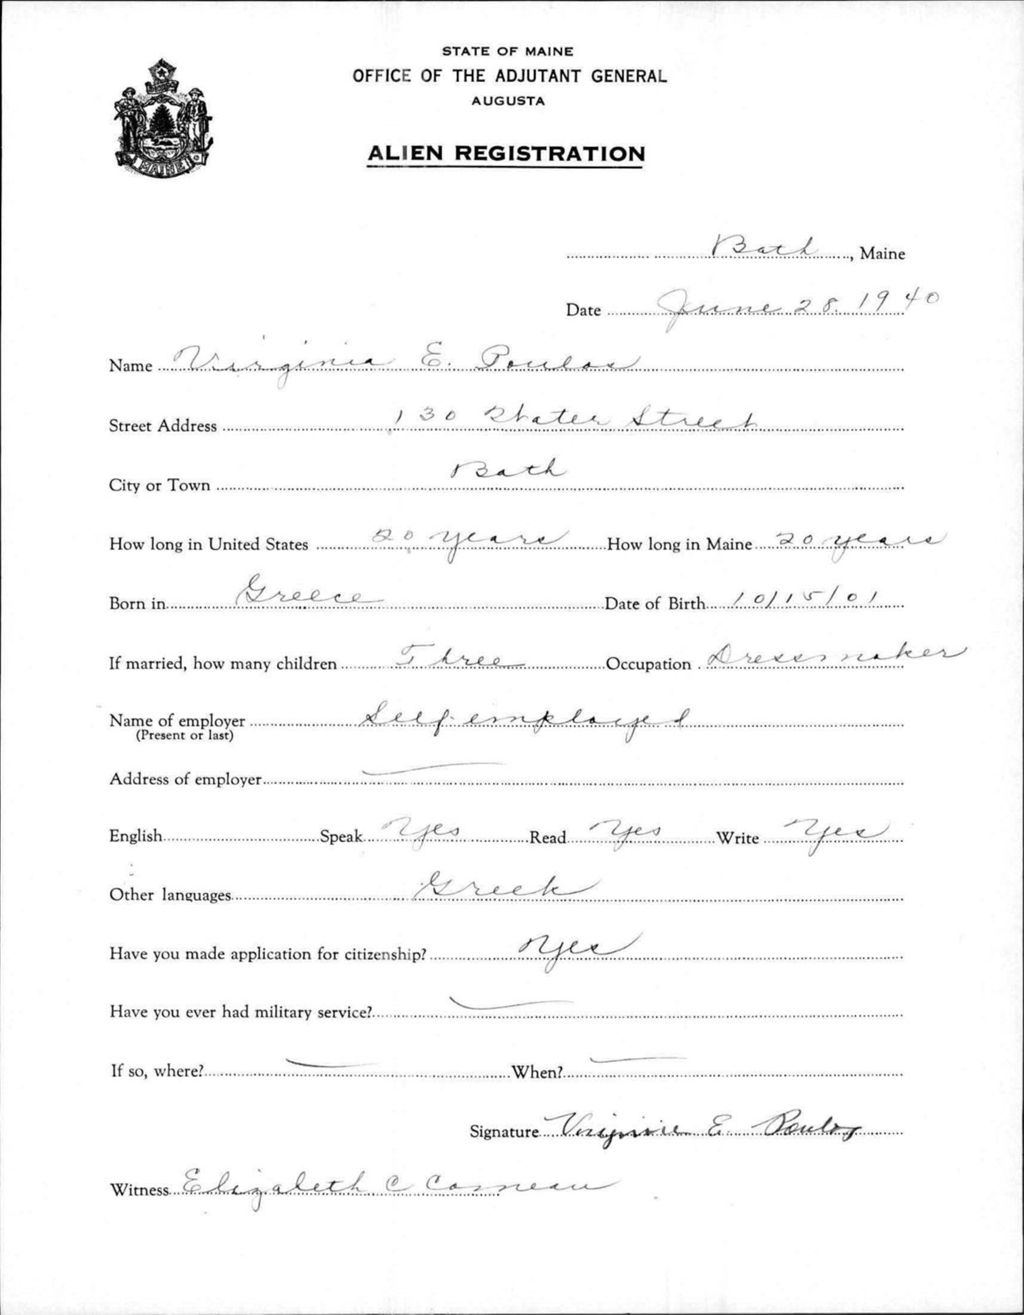 STATE OF MAINE
OFFICE OF THE ADJUTANT GENERAL
AUGUSTA
ALIEN REGISTRATION
MAINE
Bath, Maine
Date June 28. 1940
Name Virginia E. Poulos
Street Address 130 Water Street
City or Town Bath
How long in United States 20 years How long in Maine 20 years
Born in Greece Date of Birth 10/15/01
If married, how many children Three Occupation Dressmaker
Name of employer Self-employed
(Present or last)
Address of employer —
English Speak Yes Read Yes Write Yes
Other languages Greek
Have you made application for citizenship? Yes
Have you ever had military service? —
If so, where? — When? —
Signature Virginie E. Poulos
Witness Elizabeth C